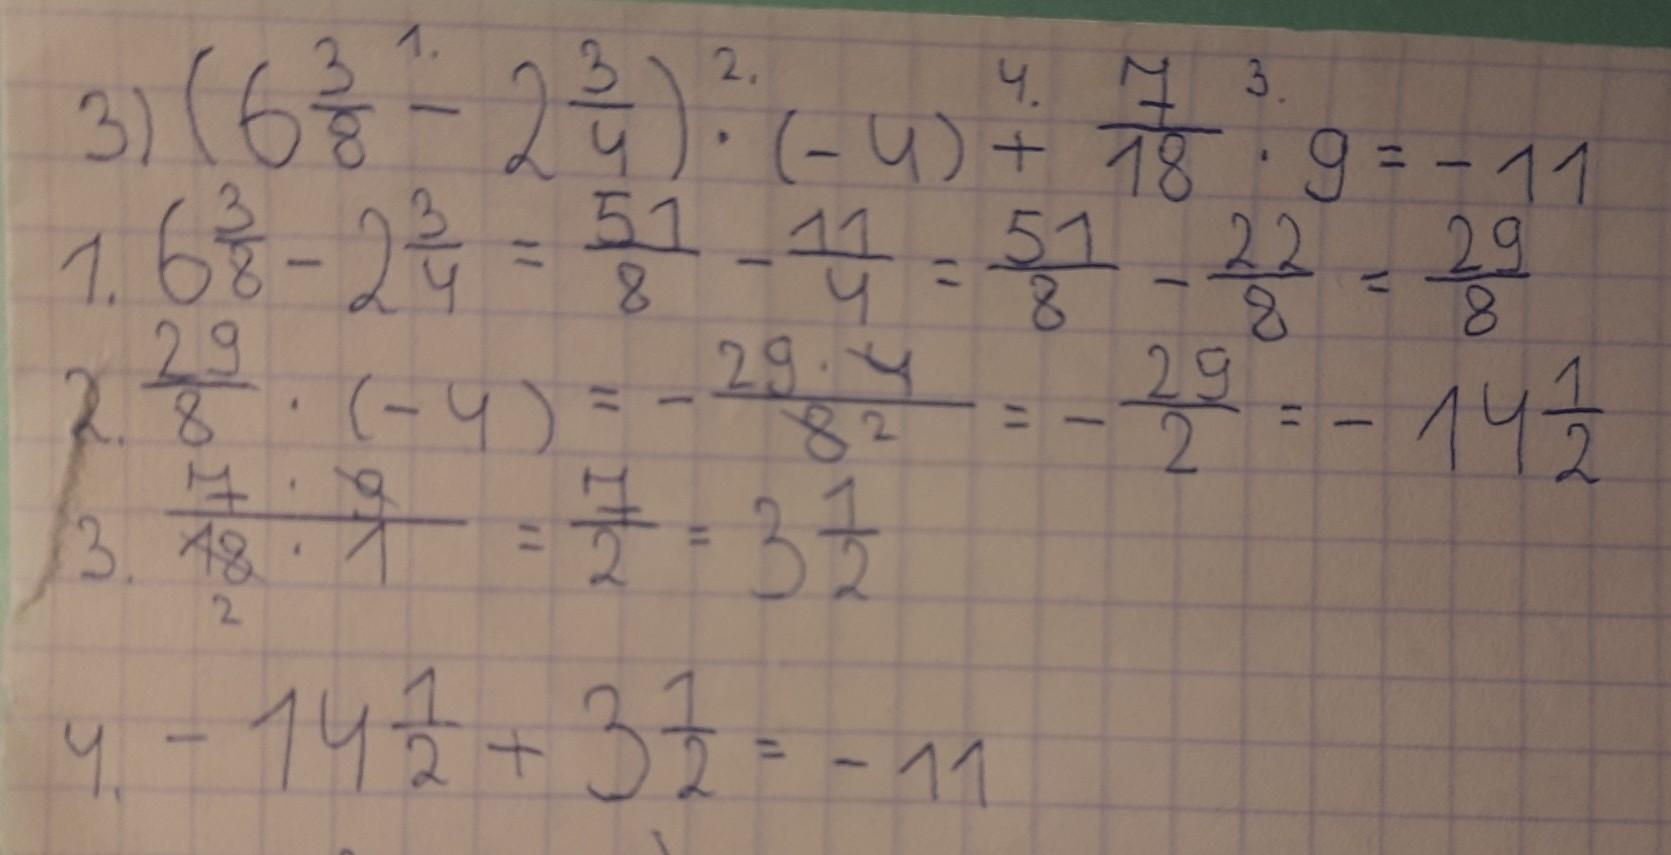 3) (6 3/8 1. - 2 3/4) 2. · (-4) 4. + 7/18 3. · 9 = -11
1. 6 3/8 - 2 3/4 = 51/8 - 11/4 = 51/8 - 22/8 = 29/8
2. 29/8 · (-4) = - 29·4/8 2 = - 29/2 = - 14 1/2
3. 7 · 9/18 · 1 2 = 7/2 = 3 1/2
4. - 14 1/2 + 3 1/2 = - 11